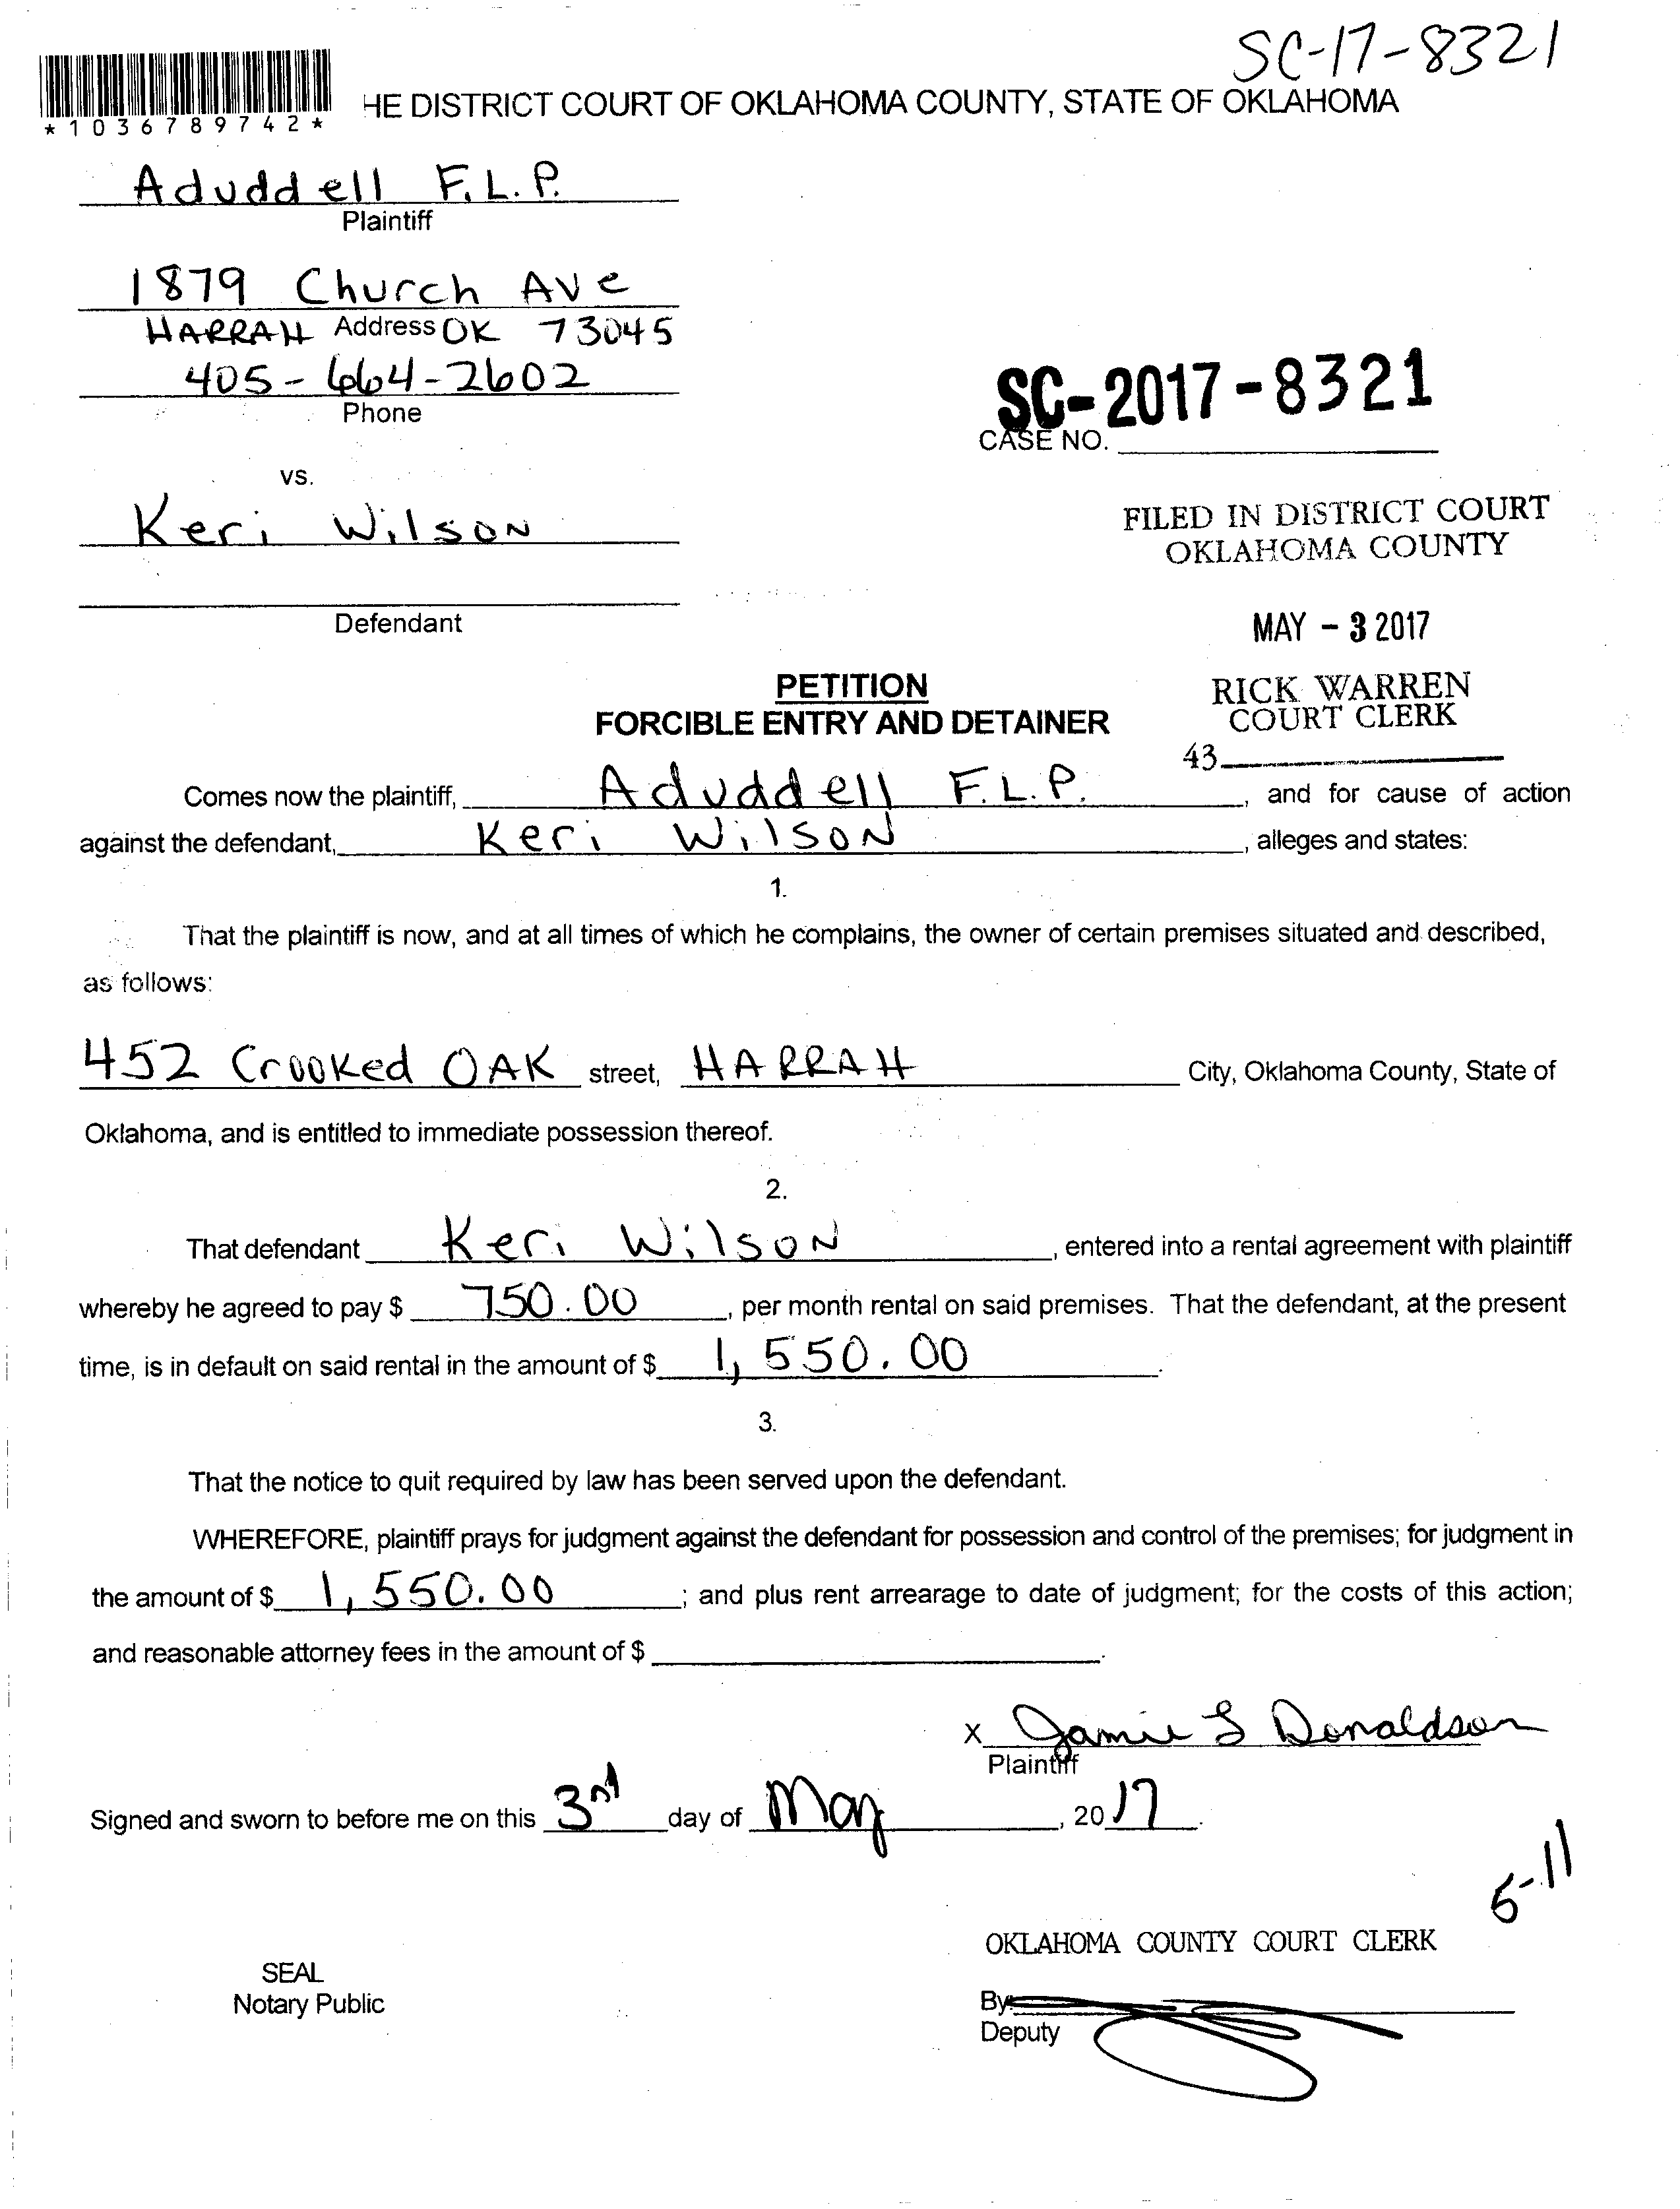 SC-17-8321
*1036789742*
HE DISTRICT COURT OF OKLAHOMA COUNTY, STATE OF OKLAHOMA
Aduddell F.L.P.
Plaintiff
1879 Church Ave
HARRAH Address OK 73045
405-664-2602
Phone
SC-2017-8321
CASE NO.
vs.
Keri Wilson
FILED IN DISTRICT COURT
OKLAHOMA COUNTY
Defendant
MAY - 3 2017
PETITION
FORCIBLE ENTRY AND DETAINER
RICK WARREN
COURT CLERK
43
Comes now the plaintiff, Aduddell F.L.P. , and for cause of action
against the defendant, Keri Wilson , alleges and states:
1.
That the plaintiff is now, and at all times of which he complains, the owner of certain premises situated and described,
as follows:
452 Crooked OAK street, HARRAH City, Oklahoma County, State of
Oklahoma, and is entitled to immediate possession thereof.
2.
That defendant Keri Wilson , entered into a rental agreement with plaintiff
whereby he agreed to pay $ 750.00 , per month rental on said premises. That the defendant, at the present
time, is in default on said rental in the amount of $ 1,550.00 .
3.
That the notice to quit required by law has been served upon the defendant.
WHEREFORE, plaintiff prays for judgment against the defendant for possession and control of the premises; for judgment in
the amount of $ 1,550.00 ; and plus rent arrearage to date of judgment; for the costs of this action;
and reasonable attorney fees in the amount of $ .
X Jamie S Donaldson
Plaintiff
Signed and sworn to before me on this 3rd day of May , 20 17 .
5-11
OKLAHOMA COUNTY COURT CLERK
SEAL
Notary Public
By:
Deputy